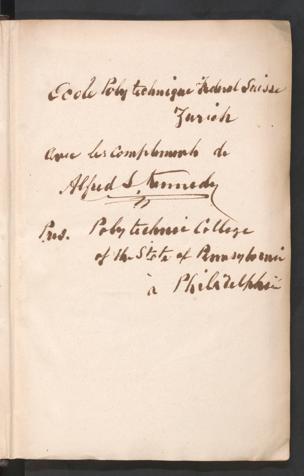 Ecole Polytechnique Federal Suisse
Zurich
avec les complements de
Alfred L. Kennedy
Pres. Polytechnic College
of the State of Pennsylvania
à Philadelphie